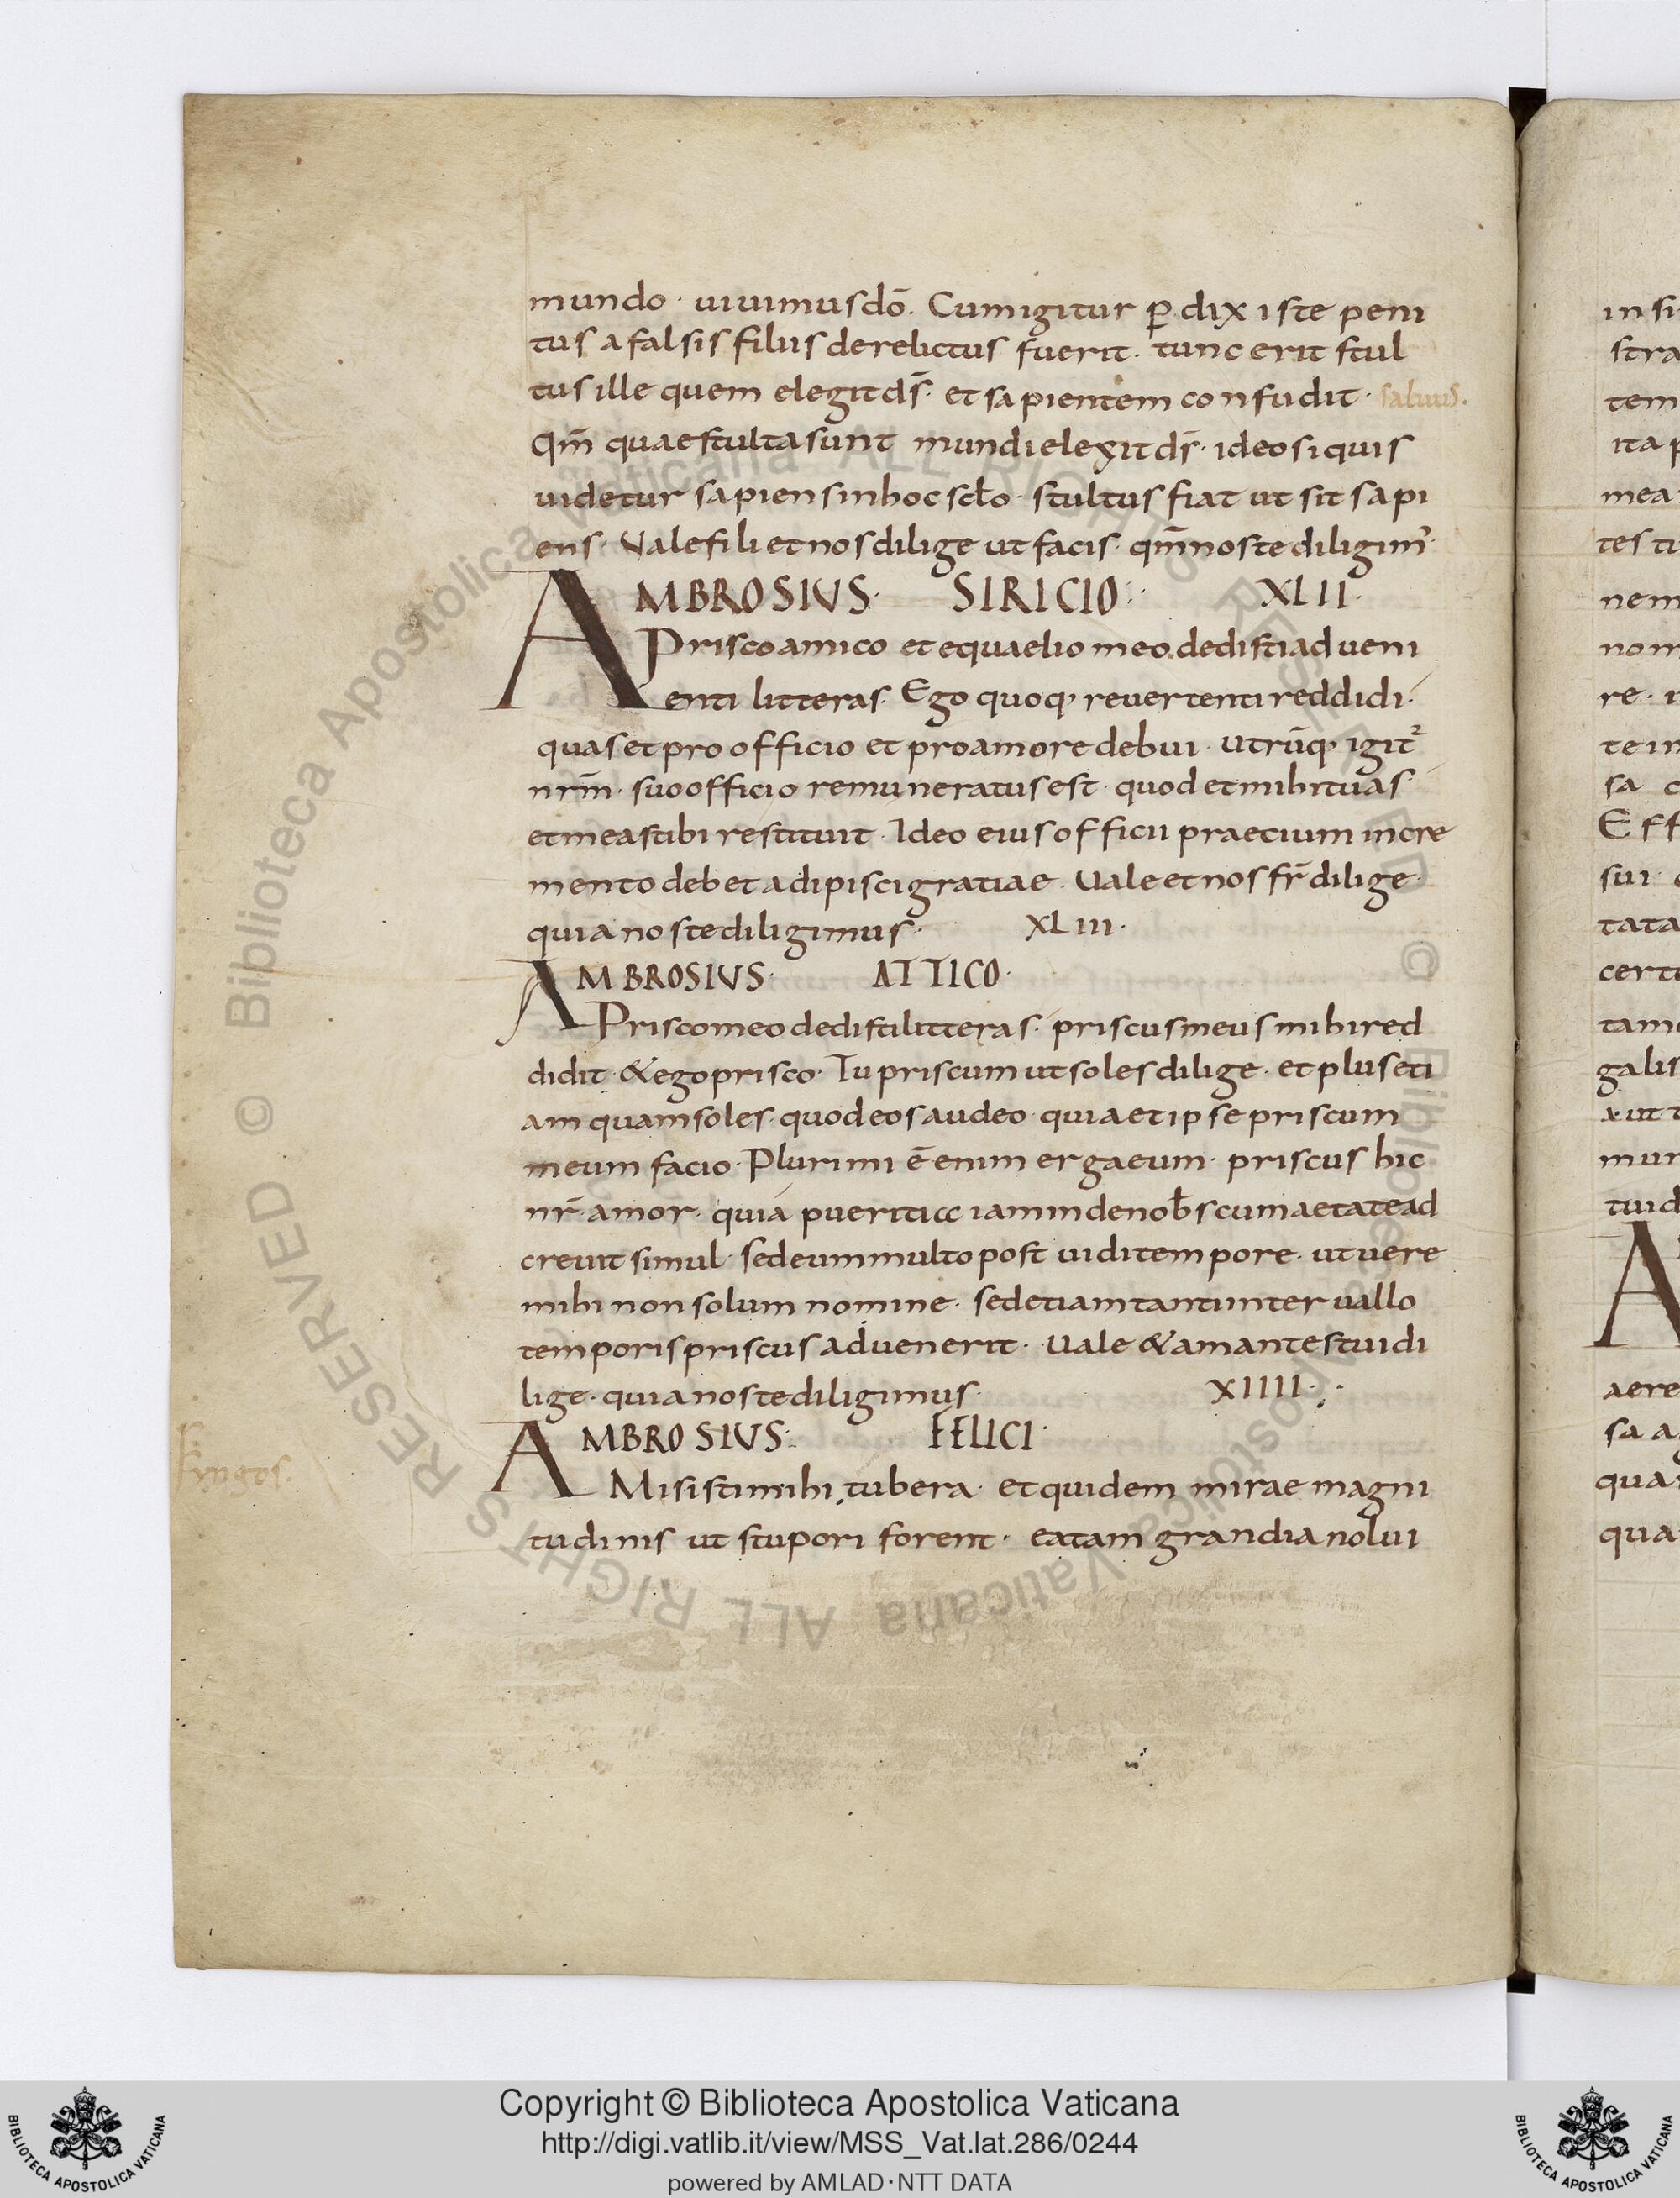 mundo · uiuimus dō. Cum igitur ꝑdix iste peni
tus a falsis filiis derelictus fuerit · tunc erit stul
tus ille quem elegit dš · et sapientem confudit · saluus.
Qm̄ quae stulta sunt mundi elegit dš · ideo si quis
uidetur sapiens in hoc scło · stultus fiat ut sit sapi
ens · Vale fili et nos dilige ut facis · qm̄ nos te diligim᾽
AMBROSIUS · SIRICIO · XLII ·
Prisco amico et equaelio meo dedisti adueni
enti litteras · Ego quoq, reuertenti reddidi ·
quas et pro officio et pro amore debui · utrūq, igit᾽
nrm̄ · suo officio remuneratus est · quod et mihi tuas
et meas tibi restituit · Ideo eius officii praecium incre
mento debet adipisci gratiae · Uale et nos fr̄ dilige ·
quia nos te diligimus · XLIII ·
AMBROSIUS · ATTICO ·
Prisco meo dedisti litteras · priscus meus mihi red
didit · & ego prisco · Tu priscum ut soles dilige · et plus eti
am quam soles · quod eos audeo · quia et ipse priscum
meum facio · Plurimi ē enim erga eum · priscus hic
nr̄ · amor · quia pueriticc iam inde nob̄s cum aetate ad
creuit simul · sed eum multo post uidi tempore · ut uere
mihi non solum nomine · sed etiam tanti interuallo
temporis priscus aduenerit · Uale & amantes tui di
lige · quia nos te diligimus · XIIII ·
AMBROSIUS · FELICI ·
Misisti mihi tubera · et quidem mirae magni
tudinis ut stupori forent · ea tam grandia nolui
in si
stra
tem
ita p
mea
tes tu
nem
nom
re · i
te in
sa c
Eff
sui ·
tata
certe
tam
galis
mun
tuid
A
aere
sa a
qua
qua
© Biblioteca Apostolica Vaticana ALL RIGHTS RESERVED © Biblioteca Apostolica Vaticana ALL RIGHTS RESERVED
Copyright © Biblioteca Apostolica Vaticana
http://digi.vatlib.it/view/MSS_Vat.lat.286/0244
powered by AMLAD·NTT DATA
BIBLIOTECA APOSTOLICA VATICANA
BIBLIOTECA APOSTOLICA VATICANA